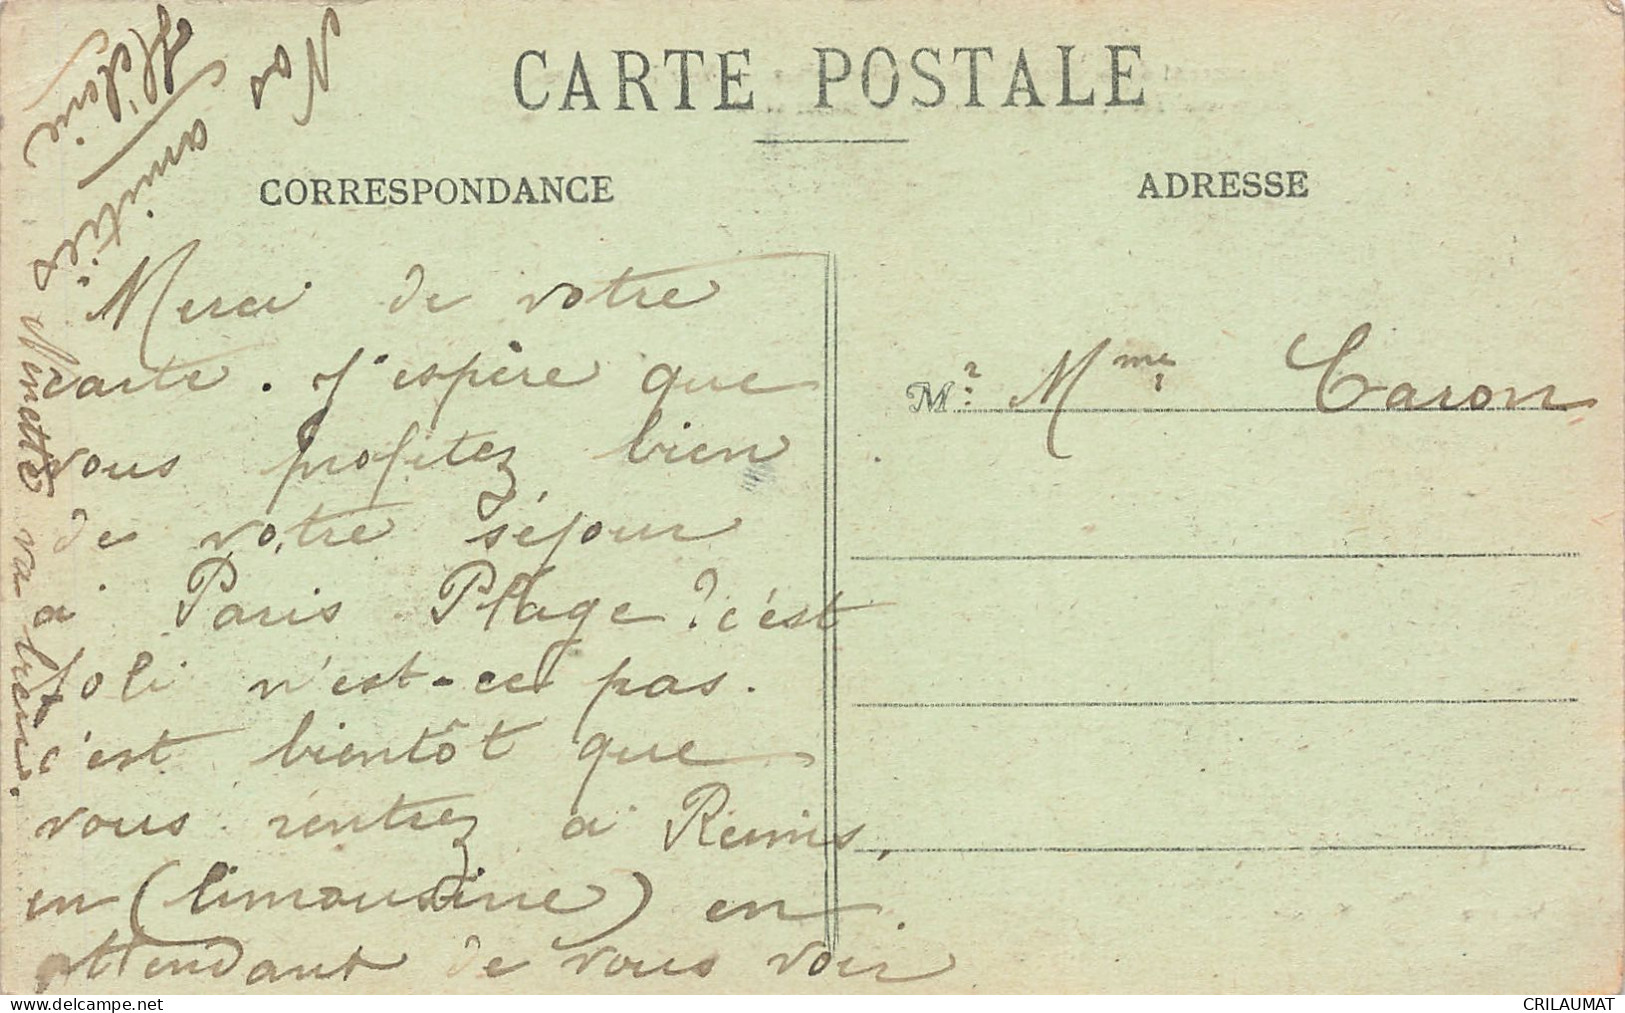 CARTE POSTALE
CORRESPONDANCE
ADRESSE
Merci de votre
carte. J'espère que
vous profitez bien
de votre séjour
à Paris Plage? c'est
joli n'est-ce pas.
c'est bientôt que
vous rentrez à Reims,
en (limousine) en
attendant de vous voir
Nos amitiés
Minette va bien.
M? Mme Caron
www.delcampe.net
CRILAUMAT